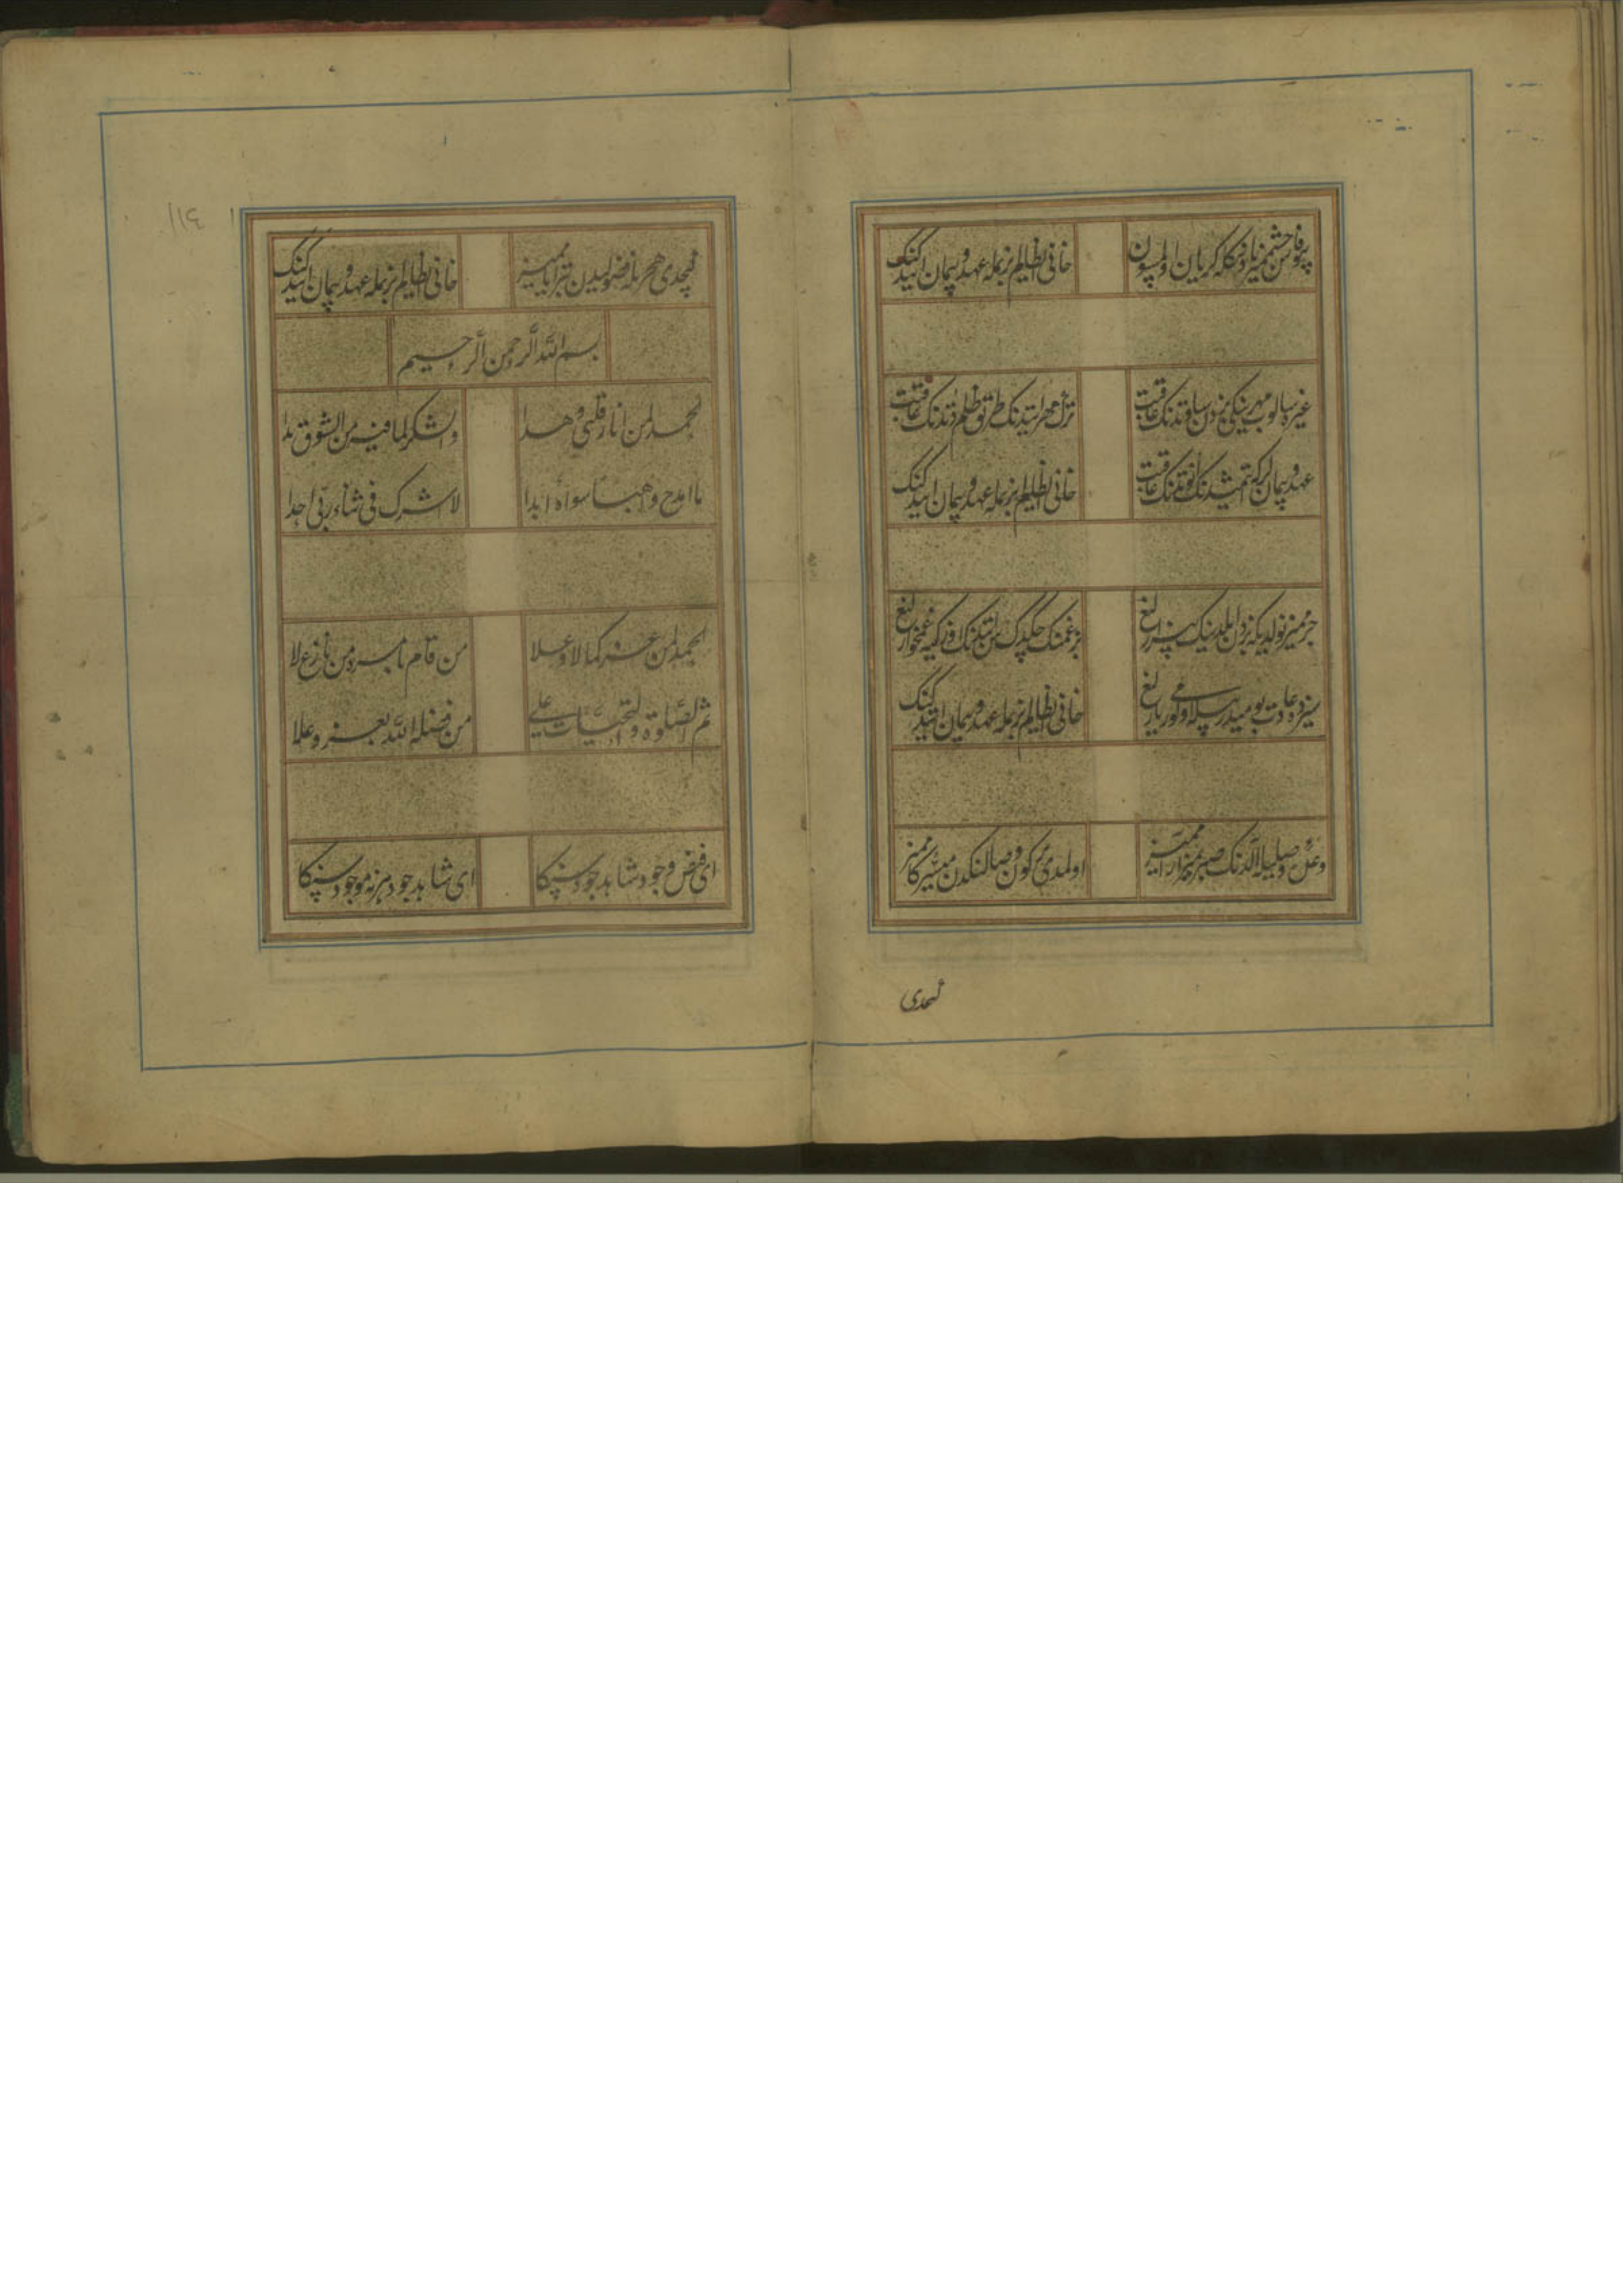 بیوفا چشممز یاد و نکله کریان اولمسون
خانی ای ظالم بزمله عهد و پیمان ایتدیکنک
غیره سالوب مهرینکی بزدن ساوتدنک عاقبت
ترک مهر ایتدنک طریق ظلم دتدنک عاقبت
عهد و پیمان کرک ایتمشدنک اونوتدنک عاقبت
خانی ای ظالم بزمله عهد و پیمان ایتدیکنک
جرممز نولدی که بزدن ایلدینک بیزارلغ
بز غمنک چکدک سن ایتدنک اوزکیه غمخوارلغ
سزده عادت بومیدر بیله اولورمی یارلغ
خانی ای ظالم بزمله عهد و پیمان ایتدیکنک
وعده وصلیله الدنک صبرمز آرامز
اولمدی بر کون وصالنکدن میسر کاممز
کچدی
کچدی هجریله فضولیدن بتر ایاممز
خانی ای ظالم بزمله عهد و پیمان ایتدیکنک
بسم الله الرحمن الرحیم
الحمد لمن انار قلبی وهدا
والشکر لما فیه من الشوق بدا
ما امدح واهبا سواه ابدا
لا اشرک فی ثناء ربی احدا
الحمد لمن عز کمالا وعلا
من قام بامره ومن نازع لا
ثم الصلوة والتحیات علی
من فضله الله بعز وعلا
ای فیض وجود شاهد جود سنکا
ای شاهد جود هر نه موجود سنکا
۱۱٤